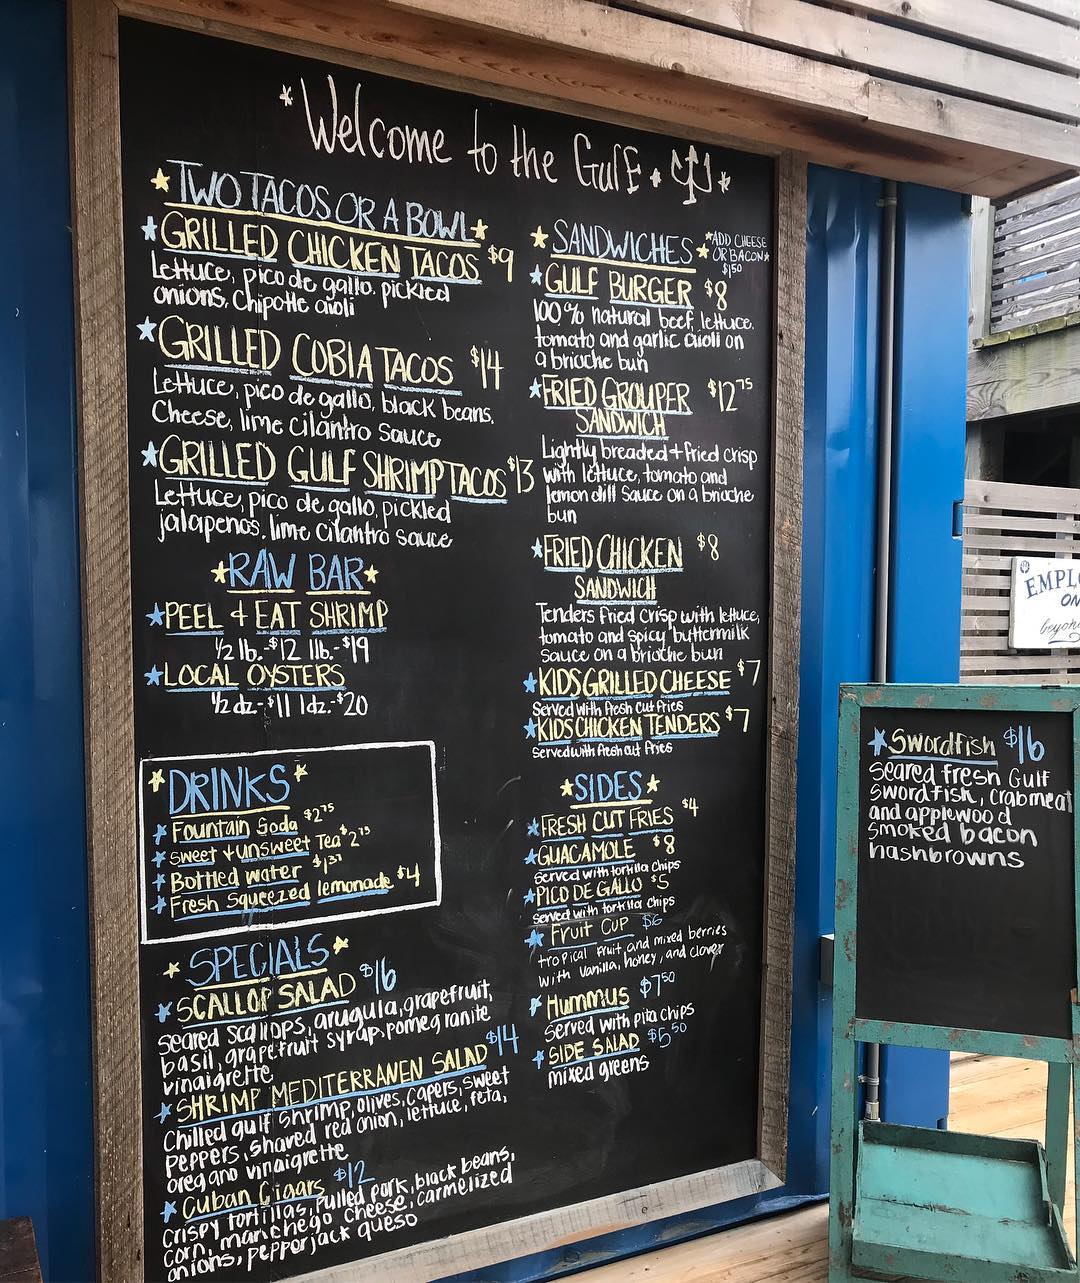 Welcome to the Gulf
TWO TACOS OR A BOWL
GRILLED CHICKEN TACOS $9
lettuce, pico de gallo, pickled
onions, chipotle aioli
GRILLED COBIA TACOS $14
lettuce, pico de gallo, black beans,
cheese, lime cilantro sauce
GRILLED GULF SHRIMP TACOS $13
lettuce, pico de gallo, pickled
jalapenos, lime cilantro sauce
RAW BAR
PEEL + EAT SHRIMP
1/2 lb.-$12 1lb.-$19
LOCAL OYSTERS
1/2 dz-$11 1dz.-$20
DRINKS
Fountain Soda $2.75
Sweet + unsweet Tea $2.75
Bottled water
Fresh Squeezed lemonade $4
SPECIALS
SCALLOP SALAD $16
seared scallops, arugula, grapefruit,
basil, grapefruit syrup, pomegranite
vinaigrette
SHRIMP MEDITERRANEN SALAD $14
Chilled gulf shrimp, olives, capers, sweet
peppers, shaved red onion, lettuce, feta,
oregano vinaigrette
Cuban Cigars $12
crispy tortillas, pulled pork, black beans,
corn, manchego cheese, carmelized
onions, pepperjack queso
SANDWICHES
ADD CHEESE
OR BACON
$1.50
GULF BURGER $8
100% natural beef, lettuce,
tomato and garlic aioli on
a brioche bun
FRIED GROUPER $12.75
SANDWICH
Lightly breaded + fried crisp
with lettuce, tomato and
lemon dill sauce on a brioche
bun
FRIED CHICKEN $8
SANDWICH
Tenders fried crisp with lettuce,
tomato and spicy buttermilk
sauce on a brioche bun
KIDS GRILLED CHEESE $7
Served with fresh cut fries
KIDS CHICKEN TENDERS $7
Served with fresh cut fries
SIDES
FRESH CUT FRIES $4
GUACAMOLE $8
Served with tortilla chips
PICO DE GALLO $5
served with tortilla chips
Fruit Cup $6
tropical fruit and mixed berries
with vanilla, honey, and clover
Hummus $7.50
Served with pita chips
SIDE SALAD $5.50
mixed greens
Swordfish $16
seared fresh Gulf
swordfish, crabmeat
and applewood
smoked bacon
hashbrowns
EMPLO
ON
beyon